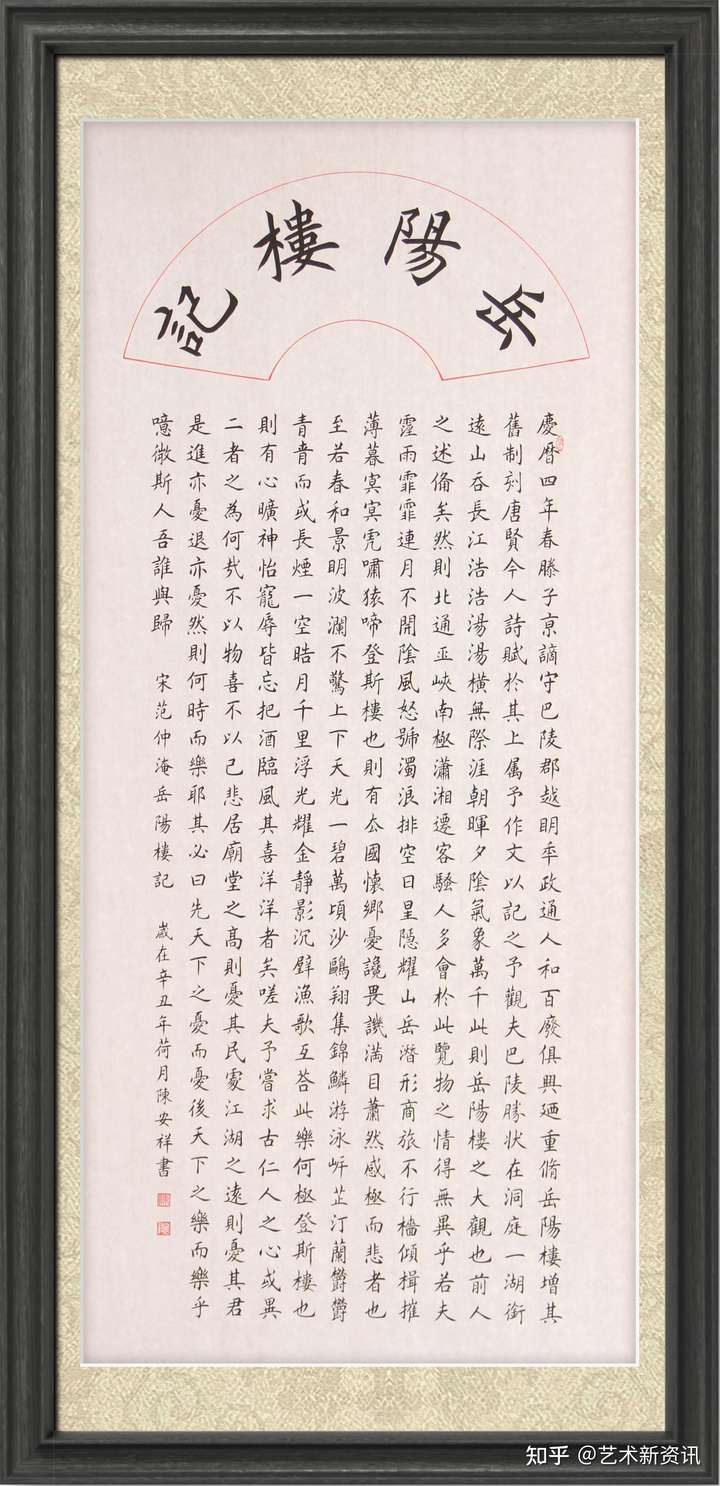 岳陽樓記
慶曆四年春滕子京謫守巴陵郡越明年政通人和百廢俱興廼重脩岳陽樓增其
舊制刻唐賢今人詩賦於其上属予作文以記之予觀夫巴陵勝状在洞庭一湖銜
遠山吞長江浩浩湯湯橫無際涯朝暉夕陰氣象萬千此則岳陽樓之大觀也前人
之述俻矣然則北通巫峽南極瀟湘遷客騷人多會於此覽物之情得無異乎若夫
霪雨霏霏連月不開陰風怒號濁浪排空日星隱耀山岳潛形商旅不行檣傾楫摧
薄暮冥冥虎嘯猿啼登斯樓也則有去國懷鄉憂讒畏譏滿目蕭然感極而悲者也
至若春和景明波瀾不驚上下天光一碧萬頃沙鷗翔集錦鱗游泳岸芷汀蘭欝欝
青青而或長煙一空皓月千里浮光耀金靜影沉璧漁歌互荅此樂何極登斯樓也
則有心曠神怡寵辱皆忘把酒臨風其喜洋洋者矣嗟夫予嘗求古仁人之心或異
二者之為何哉不以物喜不以己悲居廟堂之高則憂其民處江湖之遠則憂其君
是進亦憂退亦憂然則何時而樂耶其必曰先天下之憂而憂後天下之樂而樂乎
噫微斯人吾誰與歸 宋范仲淹岳陽樓記 歲在辛丑年荷月陳安祥書
知乎 @艺术新资讯